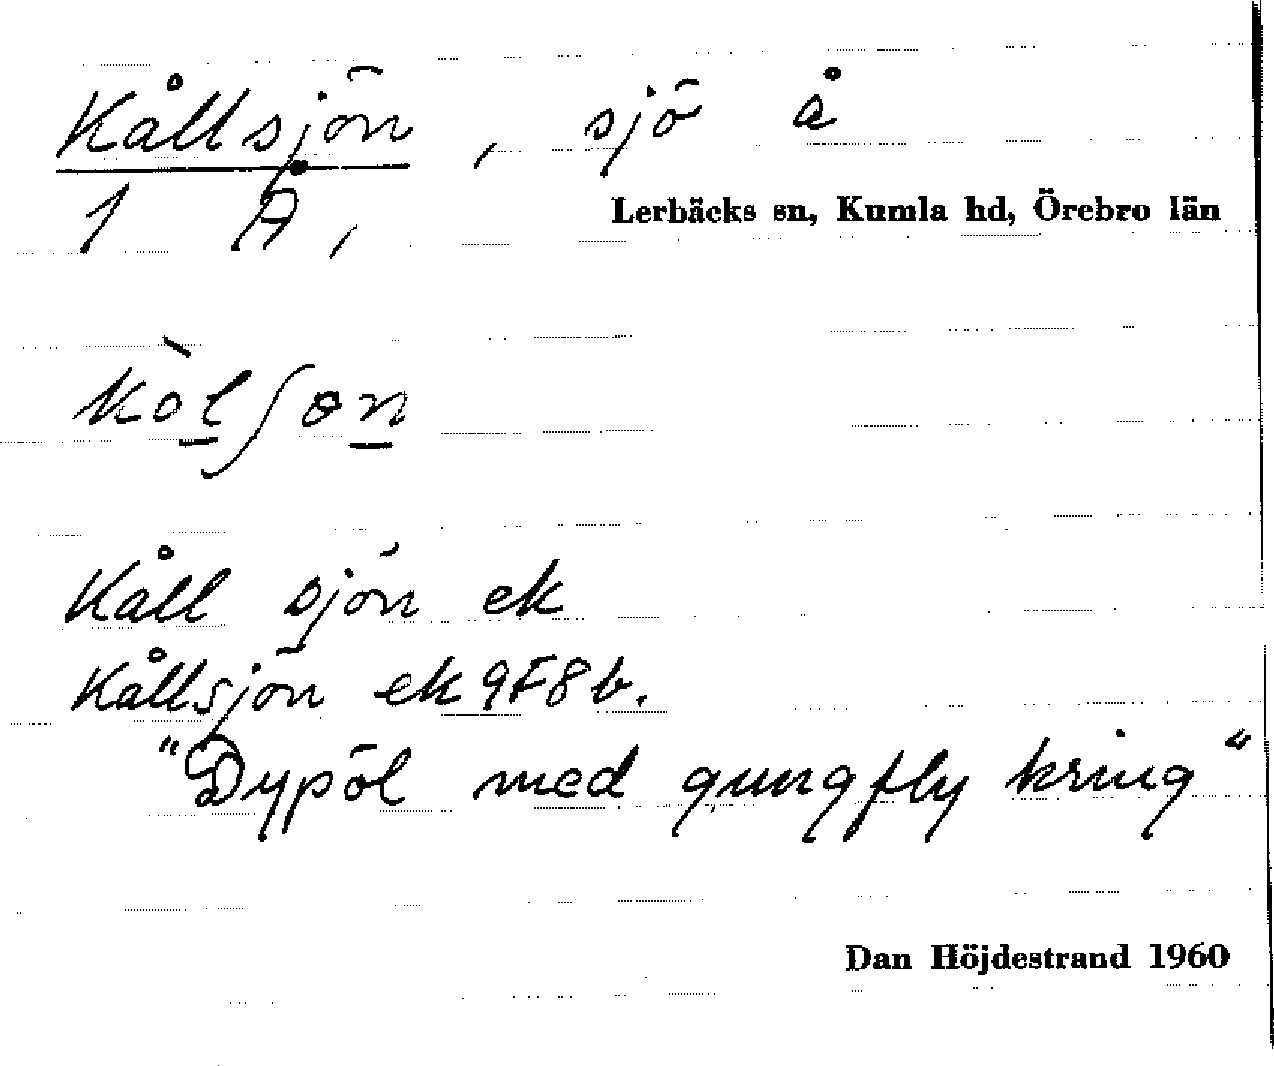 Kållsjön, sjö å
1 A,
Lerbäcks sn, Kumla hd, Örebro län
kòlʃɵn
Kåll sjön ek
Kållsjön ek 9F8b.
"Dypöl med gungfly kring"
Dan Höjdestrand 1960